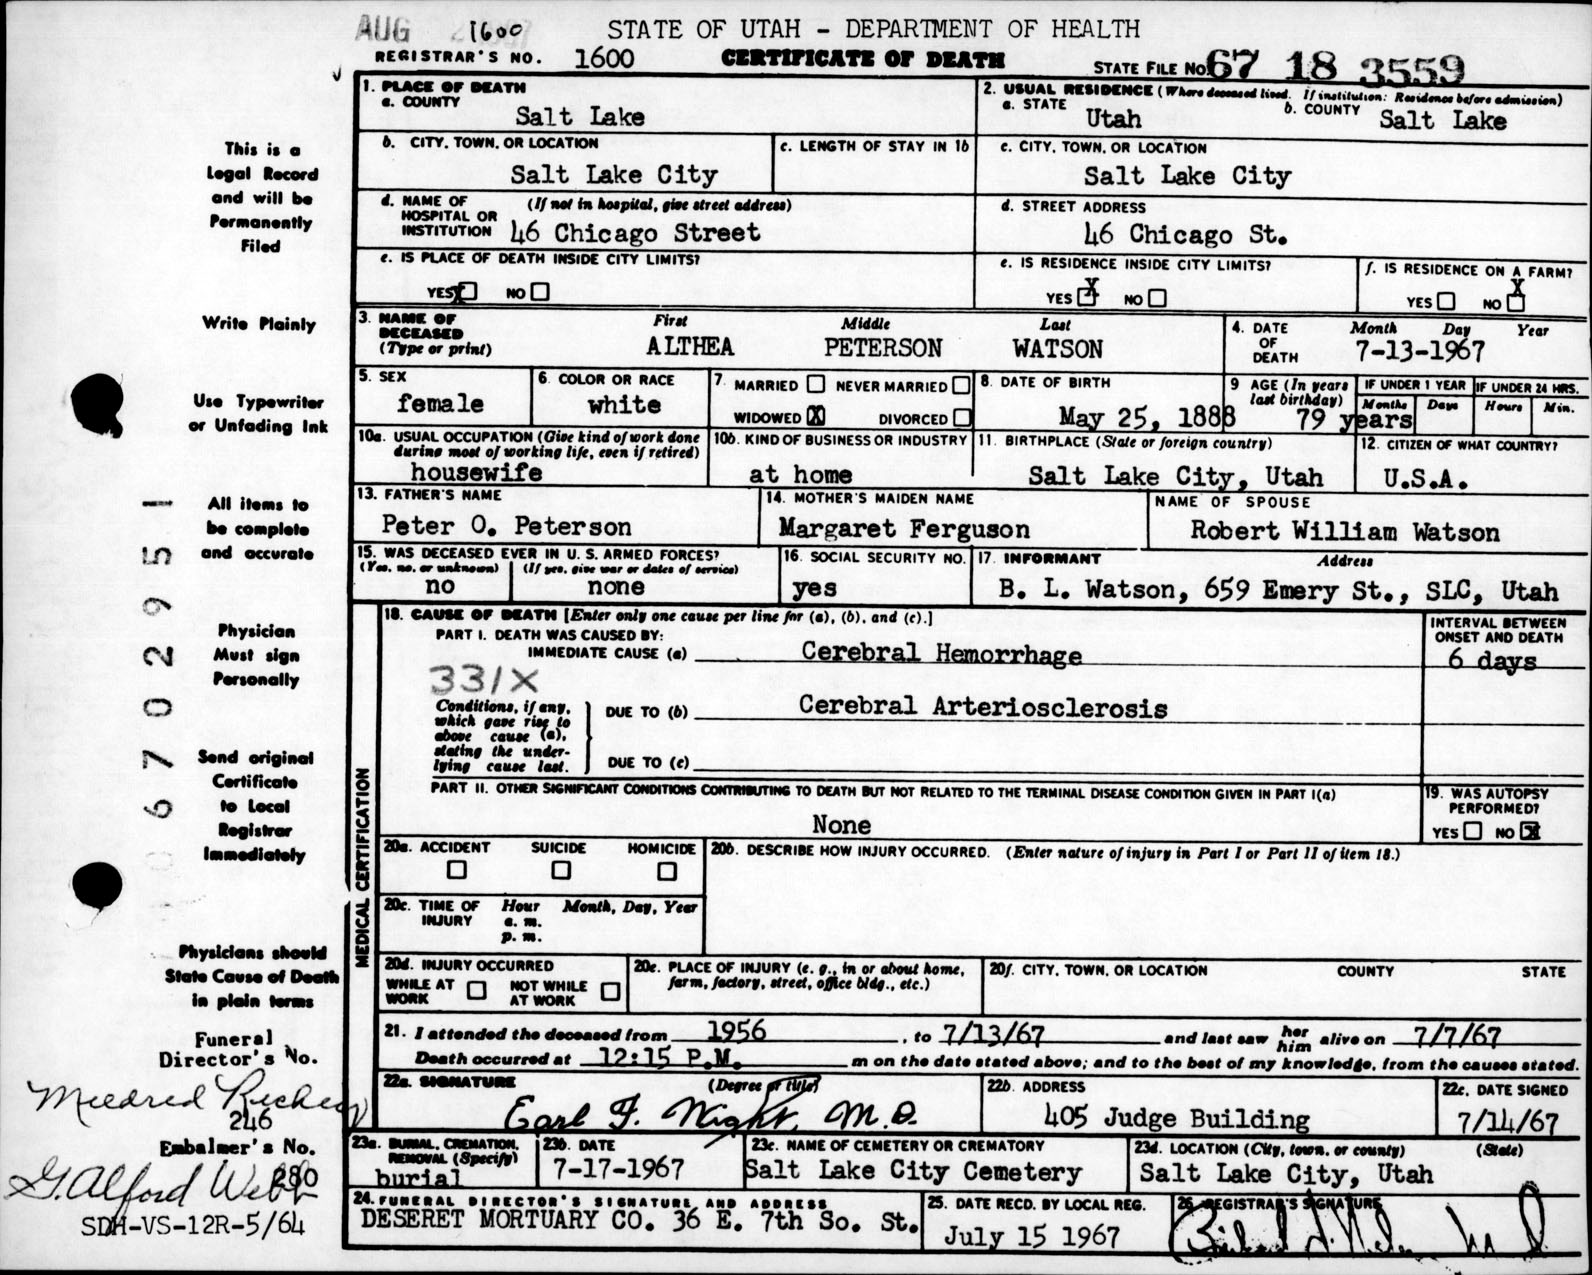 AUG 1600 STATE OF UTAH - DEPARTMENT OF HEALTH
REGISTRAR'S NO. 1600 CERTIFICATE OF DEATH STATE FILE NO. 67 18 3559
1. PLACE OF DEATH
a. COUNTY
Salt Lake
2. USUAL RESIDENCE (Where deceased lived. If institution: Residence before admission)
a. STATE Utah b. COUNTY Salt Lake
b. CITY, TOWN, OR LOCATION
Salt Lake City
c. LENGTH OF STAY IN 1b
c. CITY, TOWN, OR LOCATION
Salt Lake City
d. NAME OF HOSPITAL OR INSTITUTION (If not in hospital, give street address)
46 Chicago Street
d. STREET ADDRESS
46 Chicago St.
e. IS PLACE OF DEATH INSIDE CITY LIMITS?
YES X NO
e. IS RESIDENCE INSIDE CITY LIMITS?
YES X NO
f. IS RESIDENCE ON A FARM?
YES NO X
3. NAME OF DECEASED (Type or print)
First Middle Last
ALTHEA PETERSON WATSON
4. DATE OF DEATH Month Day Year
7-13-1967
5. SEX
female
6. COLOR OR RACE
white
7. MARRIED NEVER MARRIED
WIDOWED X DIVORCED
8. DATE OF BIRTH
May 25, 1888
9 AGE (In years last birthday)
79 years
IF UNDER 1 YEAR
Months Days
IF UNDER 24 HRS.
Hours Min.
10a. USUAL OCCUPATION (Give kind of work done during most of working life, even if retired)
housewife
10b. KIND OF BUSINESS OR INDUSTRY
at home
11. BIRTHPLACE (State or foreign country)
Salt Lake City, Utah
12. CITIZEN OF WHAT COUNTRY?
U.S.A.
13. FATHER'S NAME
Peter O. Peterson
14. MOTHER'S MAIDEN NAME
Margaret Ferguson
NAME OF SPOUSE
Robert William Watson
15. WAS DECEASED EVER IN U. S. ARMED FORCES?
(Yes, no, or unknown) (If yes, give war or dates of service)
no none
16. SOCIAL SECURITY NO.
yes
17. INFORMANT Address
B. L. Watson, 659 Emery St., SLC, Utah
18. CAUSE OF DEATH [Enter only one cause per line for (a), (b), and (c).]
PART I. DEATH WAS CAUSED BY:
IMMEDIATE CAUSE (a) Cerebral Hemorrhage
INTERVAL BETWEEN ONSET AND DEATH
6 days
331X
Conditions, if any, which gave rise to above cause (a), stating the underlying cause last.
DUE TO (b) Cerebral Arteriosclerosis
DUE TO (c)
PART II. OTHER SIGNIFICANT CONDITIONS CONTRIBUTING TO DEATH BUT NOT RELATED TO THE TERMINAL DISEASE CONDITION GIVEN IN PART I(a)
None
19. WAS AUTOPSY PERFORMED?
YES NO X
MEDICAL CERTIFICATION
20a. ACCIDENT SUICIDE HOMICIDE
20b. DESCRIBE HOW INJURY OCCURRED. (Enter nature of injury in Part I or Part II of item 18.)
20c. TIME OF INJURY Hour Month, Day, Year
a. m.
p. m.
20d. INJURY OCCURRED
WHILE AT WORK NOT WHILE AT WORK
20e. PLACE OF INJURY (e. g., in or about home, farm, factory, street, office bldg., etc.)
20f. CITY, TOWN, OR LOCATION COUNTY STATE
21. I attended the deceased from 1956, to 7/13/67 and last saw her him alive on 7/7/67
Death occurred at 12:15 P.M. m on the date stated above; and to the best of my knowledge, from the causes stated.
22a. SIGNATURE (Degree or title)
Earl F. Wight, M.D.
22b. ADDRESS
405 Judge Building
22c. DATE SIGNED
7/14/67
23a. BURIAL, CREMATION, REMOVAL (Specify)
burial
23b. DATE
7-17-1967
23c. NAME OF CEMETERY OR CREMATORY
Salt Lake City Cemetery
23d. LOCATION (City, town, or county) (State)
Salt Lake City, Utah
24. FUNERAL DIRECTOR'S SIGNATURE AND ADDRESS
DESERET MORTUARY CO. 36 E. 7th So. St.
25. DATE RECD. BY LOCAL REG.
July 15 1967
26. REGISTRAR'S SIGNATURE
This is a
Legal Record
and will be
Permanently
Filed
Write Plainly
Use Typewriter
or Unfading Ink
All items to
be complete
and accurate
Physician
Must sign
Personally
Send original
Certificate
to Local
Registrar
Immediately
Physicians should
State Cause of Death
in plain terms
Funeral
Director's No.
Mildred
246
Embalmer's No.
G. Alford Webb
280
SDH-VS-12R-5/64
67 0 2951